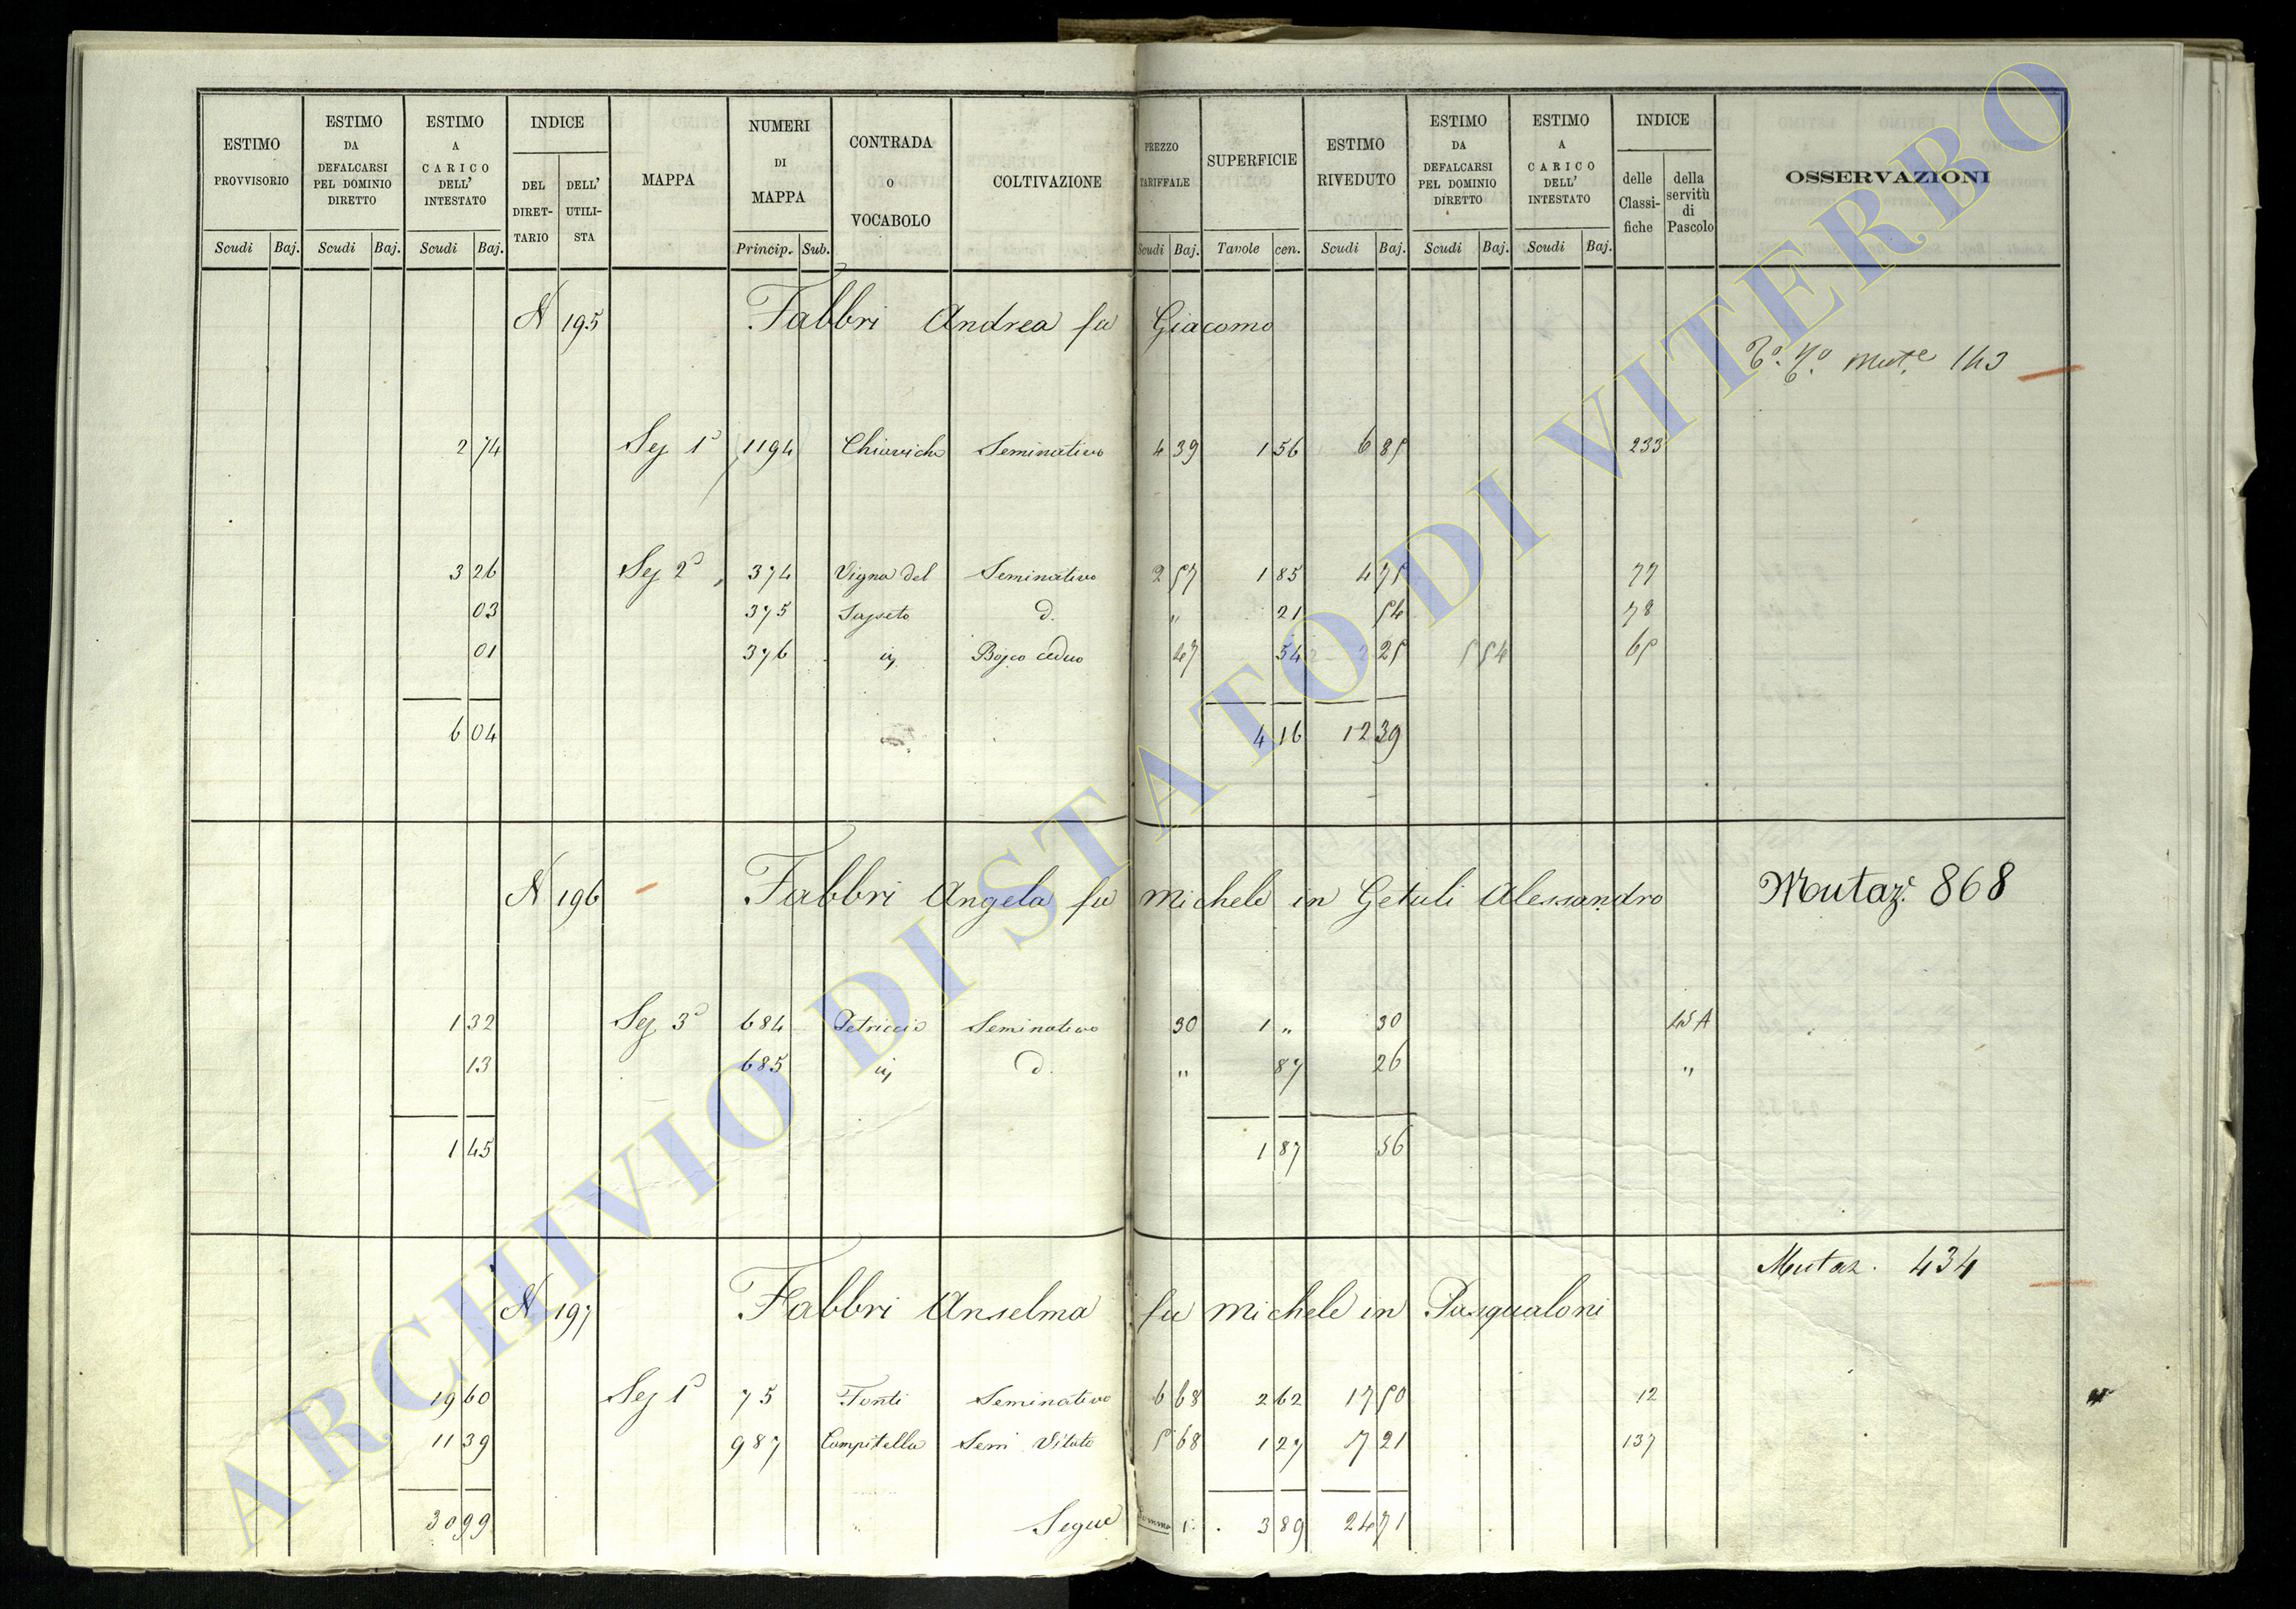 ESTIMO PROVVISORIO | ESTIMO DA DEFALCARSI PEL DOMINIO DIRETTO | ESTIMO A CARICO DELL' INTESTATO | INDICE DEL DIRET- TARIO | DELL' UTILI- STA | MAPPA | NUMERI DI MAPPA | CONTRADA O VOCABOLO | COLTIVAZIONE | PREZZO TARIFFALE | SUPERFICIE | ESTIMO RIVEDUTO | ESTIMO DA DEFALCARSI PEL DOMINIO DIRETTO | ESTIMO A CARICO DELL' INTESTATO | INDICE delle Classi- fiche | della servitù di Pascolo | OSSERVAZIONI
Scudi Baj. Scudi Baj. Scudi Baj. Princip. Sub. Scudi Baj. Tavole cen. Scudi Baj. Scudi Baj. Scudi Baj.
N 195 Fabbri Andrea fu Giacomo
143
2 74 Sez 1a 1194 Seminativo 4 39 1 56 6 85 233
3 26 Sez 2a 374 Vigna del Seminativo 2 57 1 85 4 75 77
03 375 d. " 21 54 78
01 376 Bosco ceduo 47 54 25 5 54 65
6 04 4 16 12 39
N 196 Fabbri Angela fu Michele in Getuli Alessandro Mutaz. 868
1 32 Sez 3a 684 Petriccio Seminativo 30 1 " 30
13 685 d. " 87 26 "
1 45 1 87 56
Mutaz. 434
N 197 Fabbri Anselma fu Michele in Pasqualoni
19 60 Sez 1a 75 Fonti Seminativo 6 68 2 62 17 50 12
11 39 987 Campitella Sem Vitato 5 68 1 27 7 21 137
30 99 Segue Somma 3 89 24 71
ARCHIVIO DI STATO DI VITERBO